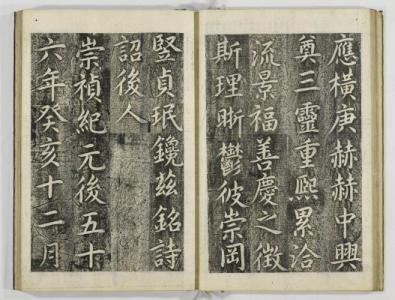 應橫庚赫赫中興
奠三靈重熙累洽
流景福善慶之徵
斯理昕鬱彼崇岡
豎貞珉鑱茲銘詩
詔後人
崇禎紀元後五十
六年癸亥十二月